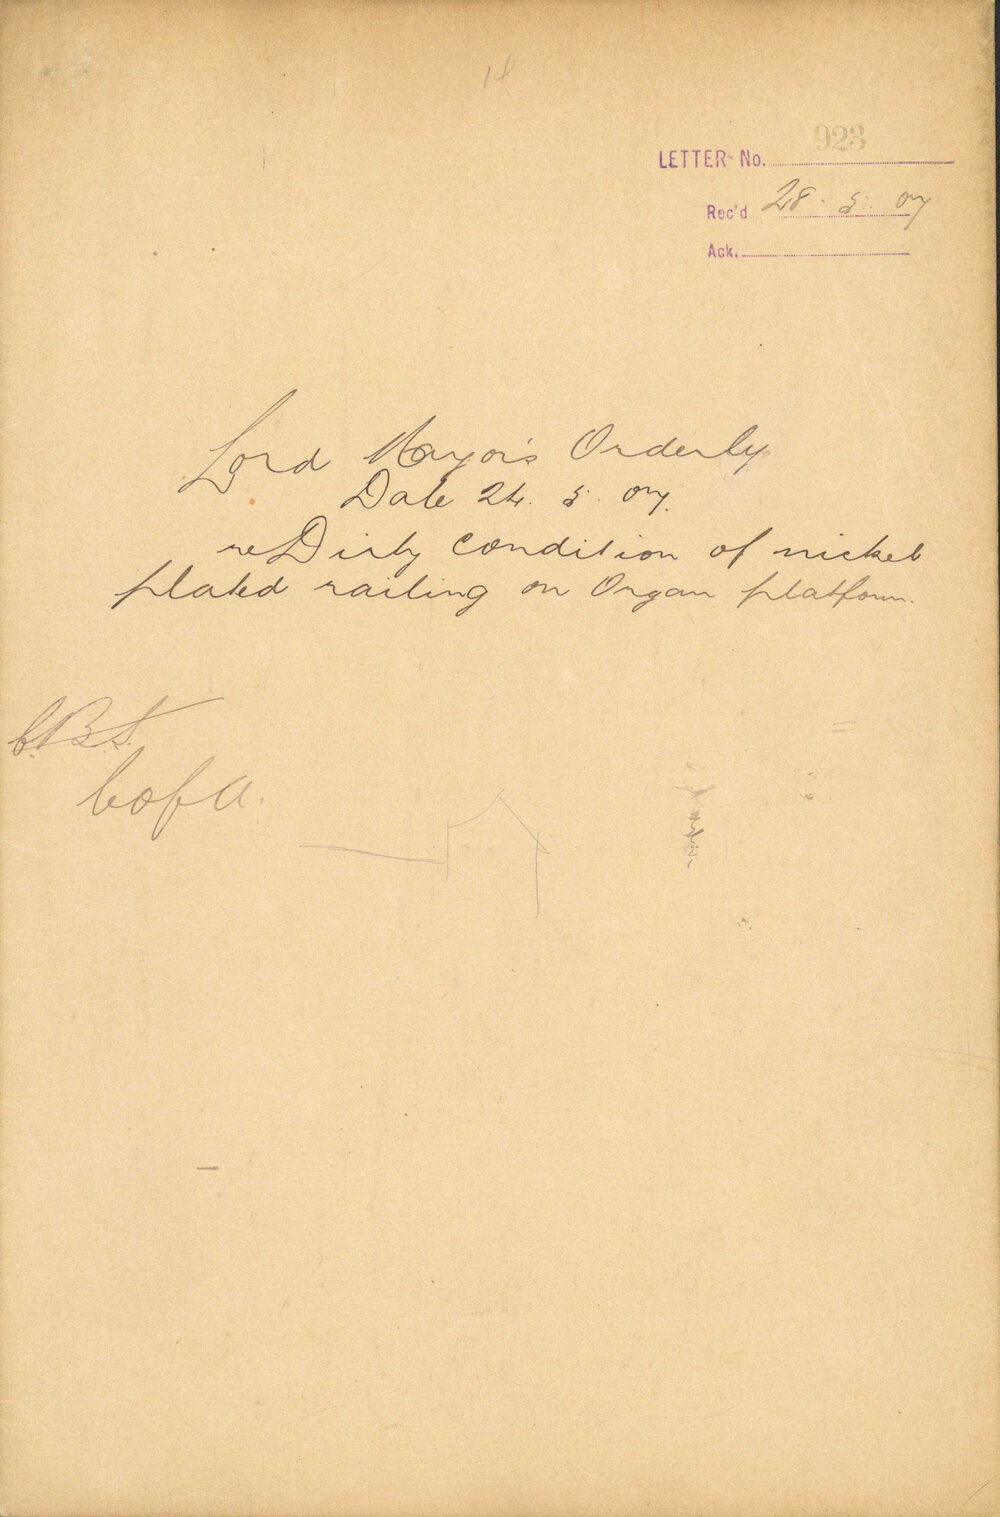 LETTER No. 923
Rec'd 28. 5. 07
Ack.
Lord Mayor's Orderly
Date 24. 5. 07.
re Dirty condition of nickel
plated railing on Organ platform.
C.B.S.
C of A.